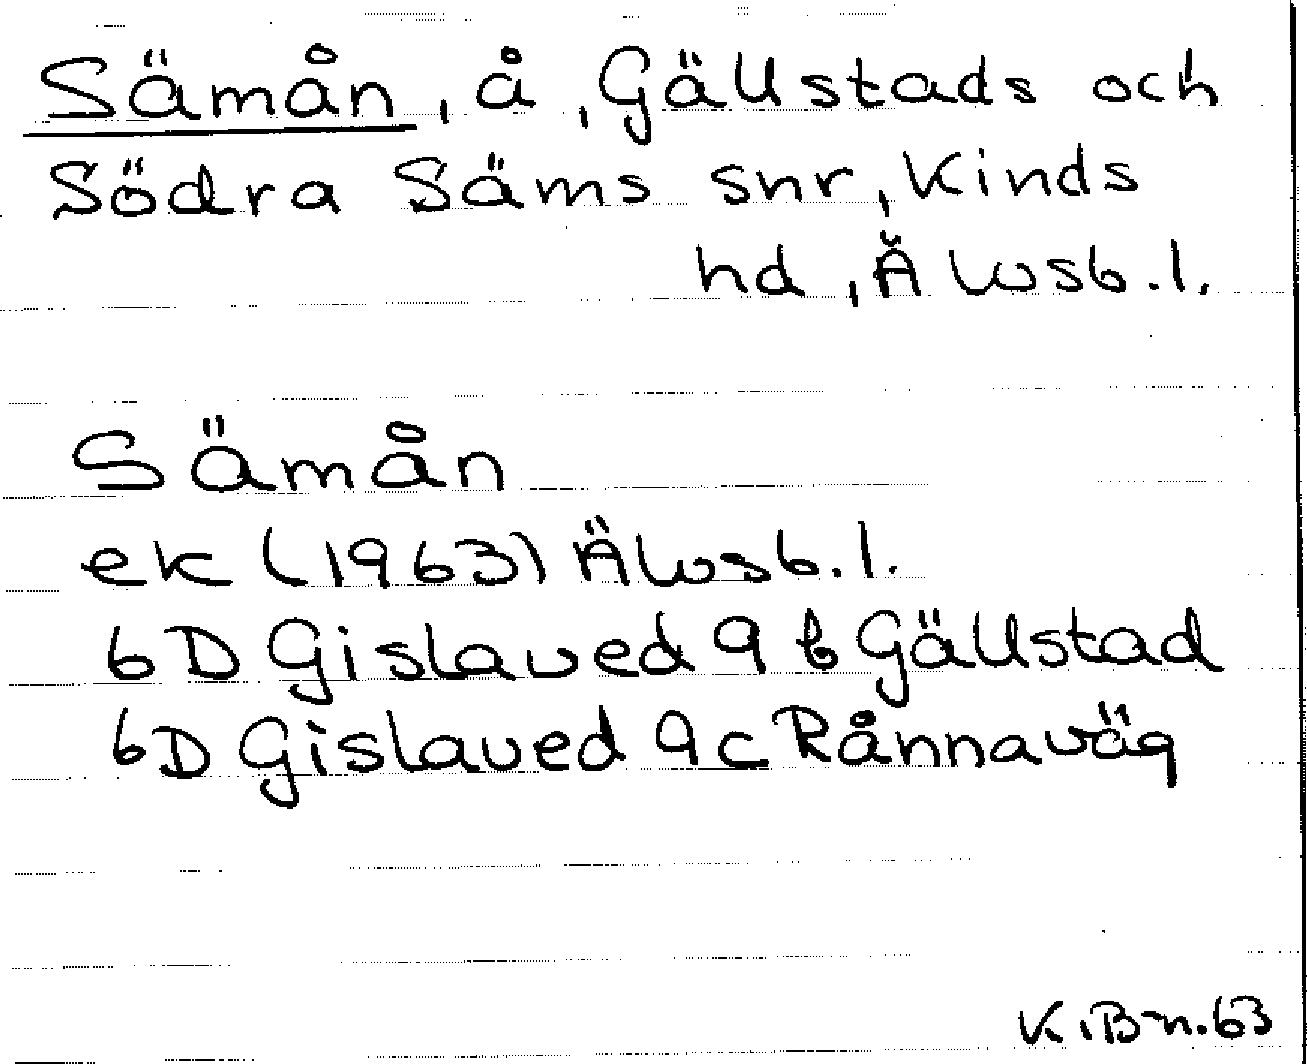 Sämån, å, Gällstads och
Södra Säms snr, Kinds
hd, Älvsb.l.
Sämån
ek (1963) Älvsb.l.
6D Gislaved 9 b Gällstad
6D Gislaved 9c Rånnaväg
K.B-n.63